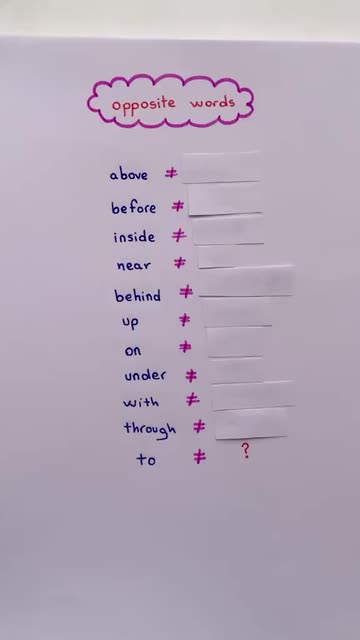 opposite words
above ≠
before ≠
inside ≠
near ≠
behind ≠
up ≠
on ≠
under ≠
with ≠
through ≠
to ≠ ?